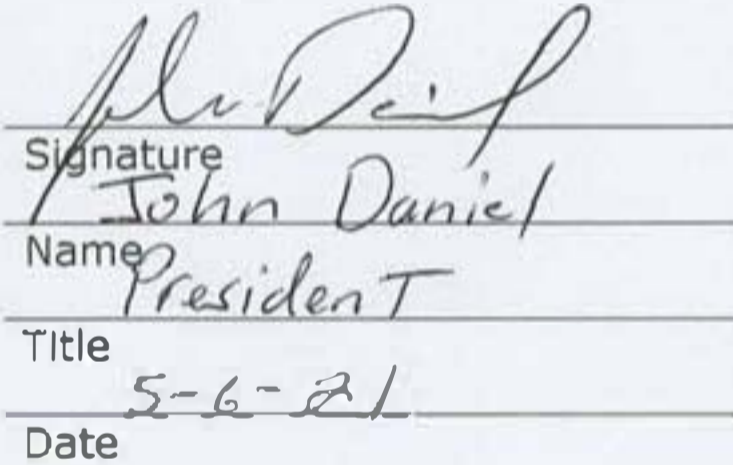 John Daniel
Signature
John Daniel
Name
PresidenT
Title
5-6-21
Date